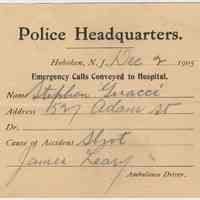 Police Headquarters.
Hoboken, N. J. Dec 2 1905
Emergency Calls Conveyed to Hospital.
Name Stephen Guracci
Address 527 Adam st
Dr.
Cause of Accident Shot
James Leary
Ambulance Driver.